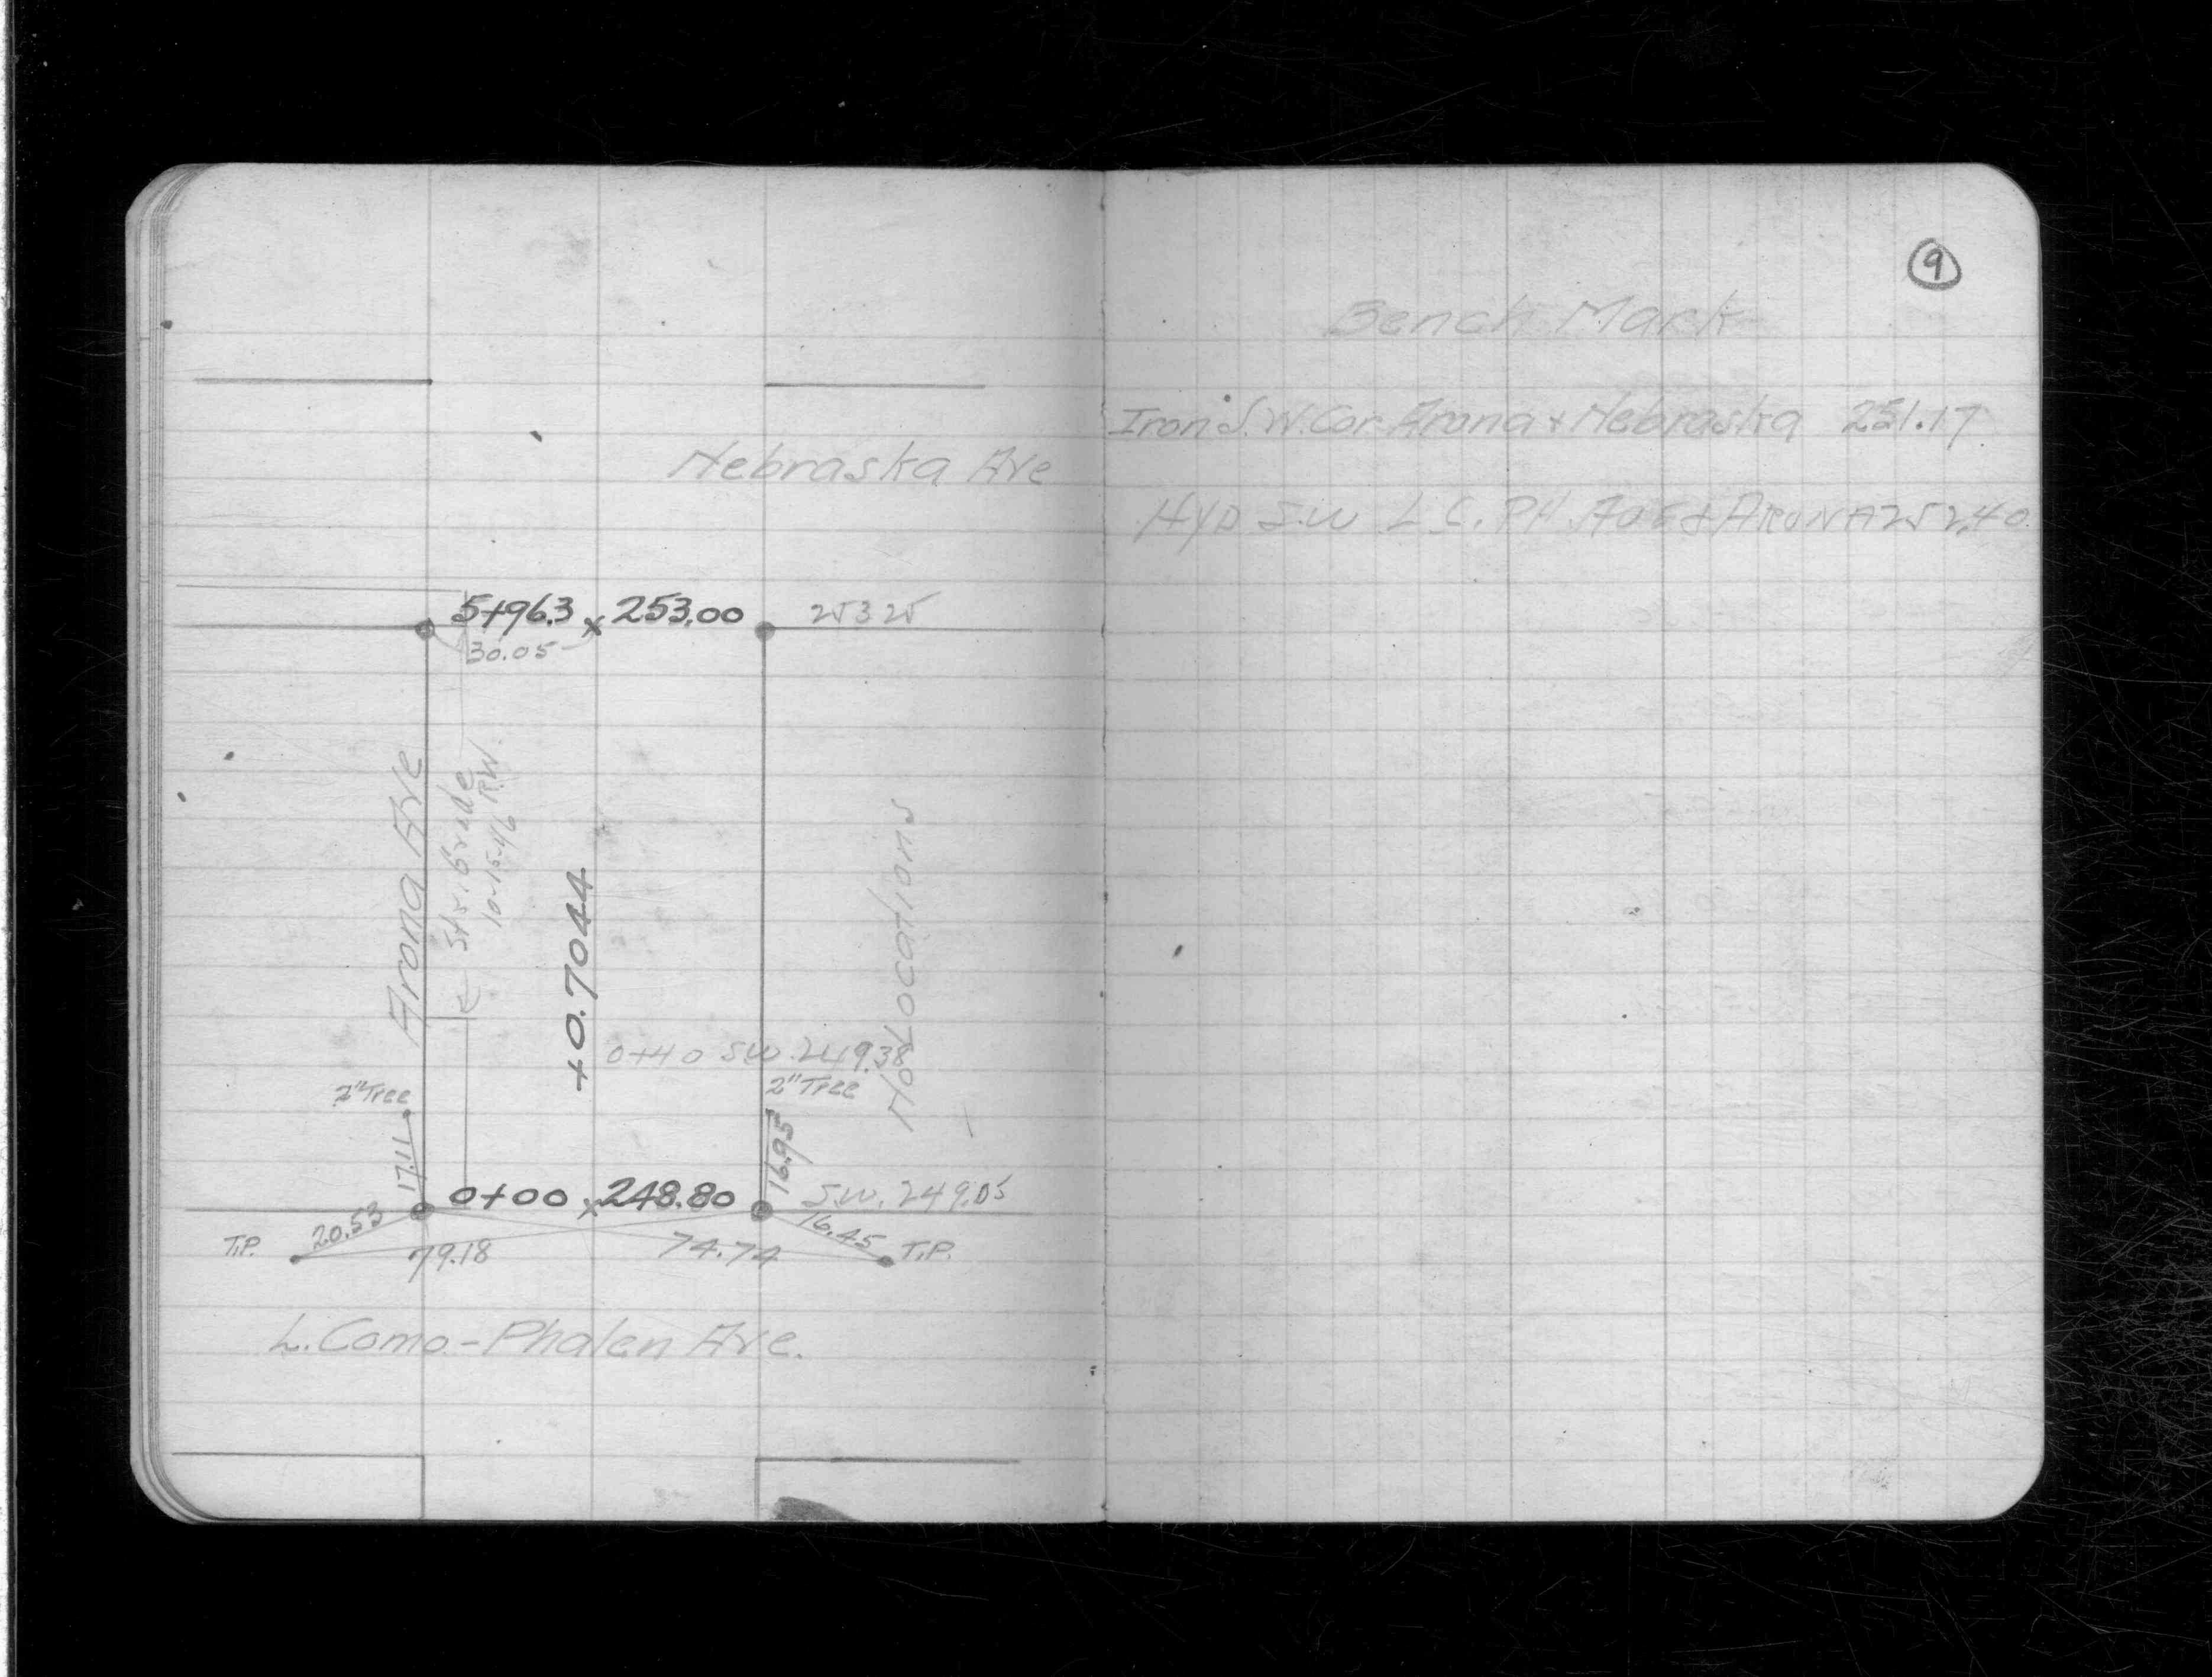 Nebraska Ave
5+96.3 x 253.00
253 25
30.05
Arona Ave
10-15-46 R.W.
+0.7044
No Locations
0+40 S.W. 249.38
2" Tree
2" Tree
17.11
16.95
0+00 x 248.80
S.W. 249.05
20.53
16.45
T.P.
79.18
74.74
T.P.
L. Como-Phalen Ave.
9
Bench Mark
Iron S.W. Cor. Arona + Nebraska 251.17
Hyd S.W L C. PH Ave & ARONA 252.40